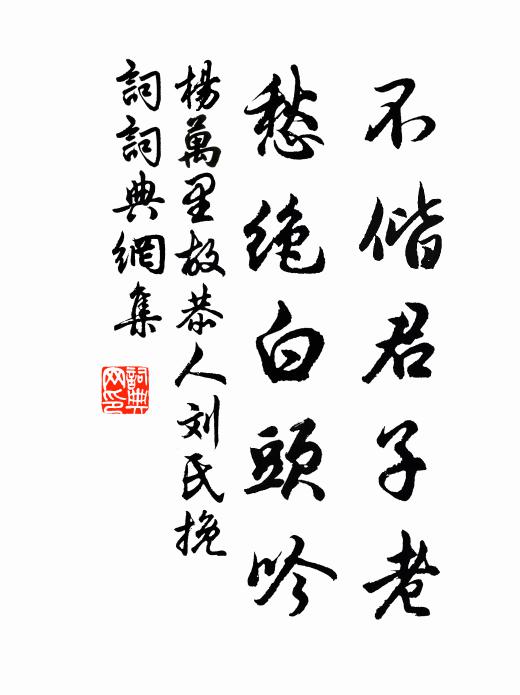 不偕君子老
愁绝白頭吟
楊萬里故恭人刘氏挽
詞詞典網集
詞典网印